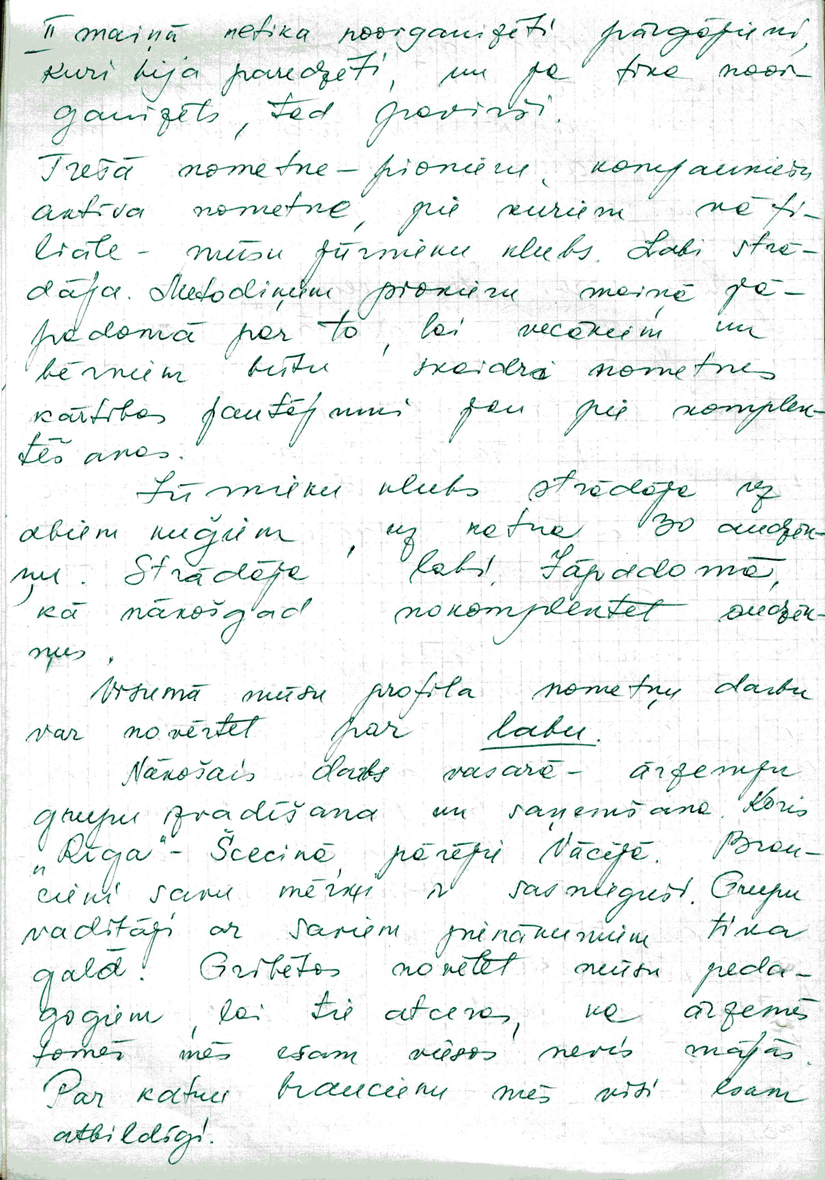 II maiņā netika noorganizēti pārgājieni,
kuri bija paredzēti, un ja tika noor-
ganizēts, tad pavirši.
Trešā nometne – pionieru, komjauniešu
aktīva nometne, pie kuriem kā fi-
liāle – mūsu jūrnieku klubs. Labi strā-
dāja. Metodiķiem pionieru maiņā jā-
padomā par to, lai vecākiem un
bērniem būtu skaidri nometnes
kārtības jautājumi jau pie komplek-
tēšanas.
Jūrnieku klubs strādāja uz
abiem kuģiem, uz katra 30 audzēk-
ņu. Strādāja labi. Jāpadomā,
kā nākošgad nokomplektēt audzēk-
ņus.
Visumā mūsu profila nometņu darbu
var novērtēt par labu.
Nākošais darbs vasarā – ārzemju
grupu izvadīšana un saņemšana. Koris
„Rīga" – Ščecinā, pārējie Vācijā. Brau-
cieni savu mērķi ir sasnieguši. Grupu
vadītāji ar saviem pienākumiem tika
galā. Gribētos novēlēt mūsu peda-
gogiem, lai tie atceras, ka ārzemēs
tomēr mēs esam viesos nevis mājās.
Par katru braucienu mēs visi esam
atbildīgi.